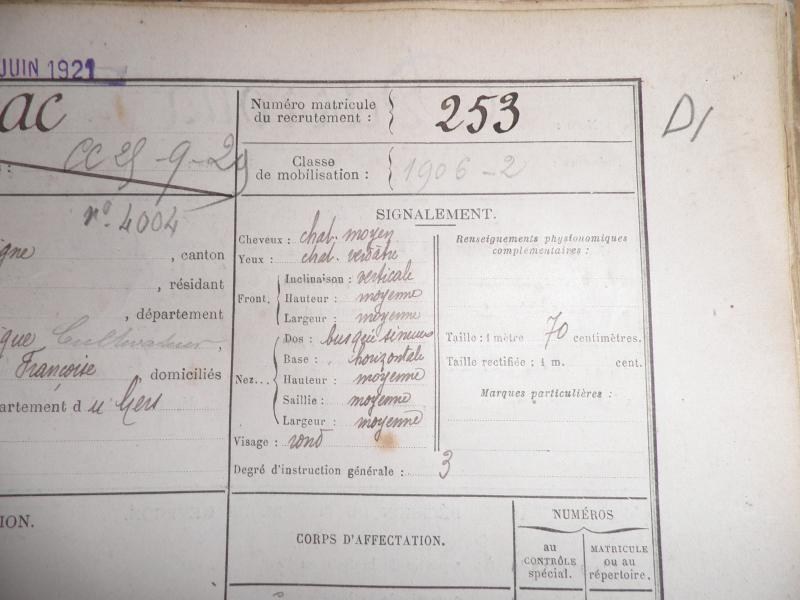 JUIN 1921
ac
Numéro matricule
du recrutement : 253
D1
CC 25-9-29
Classe
de mobilisation : 1906-2
no 4004
SIGNALEMENT.
Cheveux : chat. moyen
Yeux : chat. verdâtre
Front. Inclinaison : verticale
Hauteur : moyenne
Largeur : moyenne
Nez... Dos : busqué sinueux
Base : horizontale
Hauteur : moyenne
Saillie : moyenne
Largeur : moyenne
Visage : rond
Degré d'instruction générale : 3
Renseignements physionomiques
complémentaires :
Taille : 1 mètre 70 centimètres.
Taille rectifiée : 1 m. cent.
Marques particulières :
gne , canton
, résidant
, département
ique Cultivateur ,
Françoise , domiciliés
artement du Gers
ION.
CORPS D'AFFECTATION.
NUMÉROS
au
CONTRÔLE
spécial.
MATRICULE
ou au
répertoire.